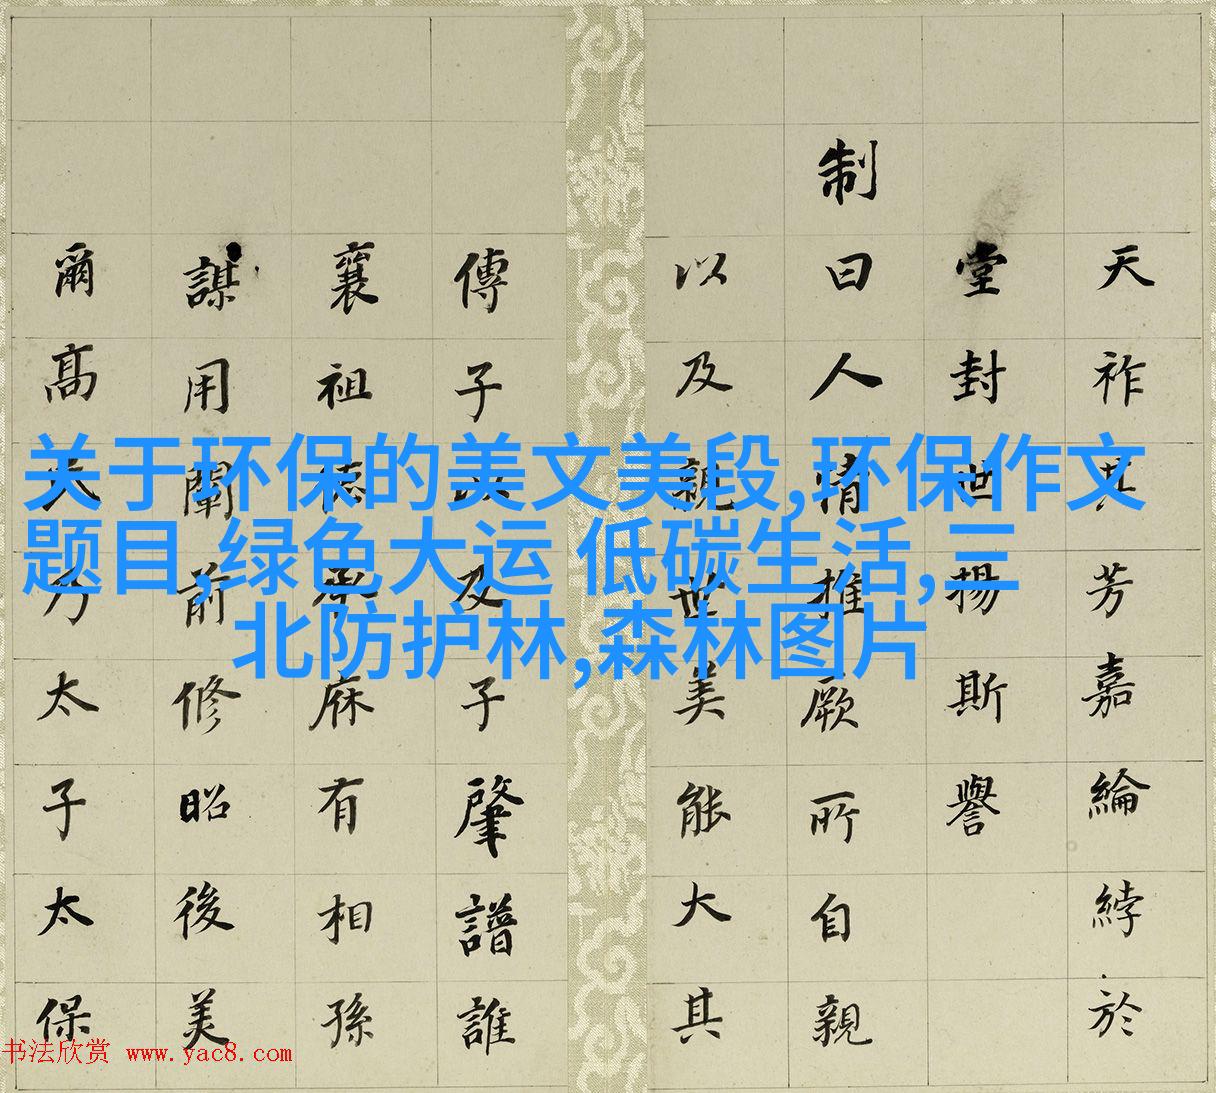 关于环保的美文美段,环保作文
题目,绿色大运 低碳生活,三
北防护林,森林图片
天祚其芳嘉綸綍於
堂封世揚斯譽
制曰人情推厥所自親
以及親世美能大其
傳子以及子肇譜誰
襄祖德承庥有相孫
謀用闡前修昭後美
爾高大乃太子太保
书法欣赏 www.yac8.com